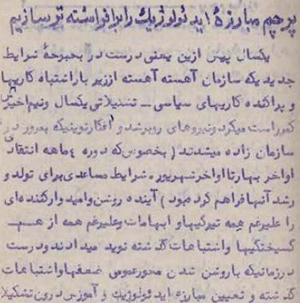 پرچم مبارزهٔ ایدئولوژیک را برافراشته تر سازیم
یکسال پیش ازین یعنی درست در بحبوحهٔ شرایط
جدید یکه سازمان آهسته آهسته اززیر بار اشتباه کاریها
و پراگنده کاریهای سیاسی ــ تشکیلاتی یکسال ونیم اخیر
کمر راست میکرد ونیروهای روبرشد و افکار نوینیکه بمرور در
سازمان زاده میشدند ( بخصوص که دوره ٤ ماهه انتقاد
اواخر بهار تا اواخر شهریور ه شرایط مساعدی برای تولد و
رشد آنها فراهم کرده بود ) آینده روشن وامید وارکننده ای
را علیرغم همه تیرگیها و ابهامات وعلیرغم همه از هم
گسیختگیها واشتباهات گذشته نوید میدادند ودرست
در زمانیکه باروشن شدن محور عمومی ضعفها واشتباهات
گذشته و تعیین مبارزه ایدئولوژیک و آموزش درون تشکیلا